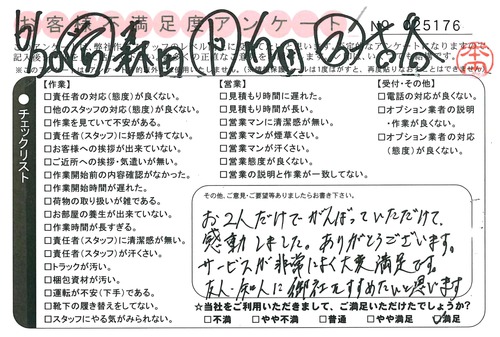 お客様不満足度アンケート
No 025176
本
チェックリスト
【作業】
□責任者の対応(態度)が良くない。
□他のスタッフの対応(態度)が良くない。
□作業を見ていて不安がある。
□責任者(スタッフ)に好感が持てない。
□お客様への挨拶が出来ていない。
□ご近所への挨拶・気遣いが無い。
□作業開始前の内容確認がなかった。
□作業開始時間が遅れた。
□荷物の取り扱いが雑である。
□お部屋の養生が出来ていない。
□作業時間が長すぎる。
□責任者(スタッフ)に清潔感が無い。
□責任者(スタッフ)が汗くさい。
□トラックが汚い。
□梱包資材が汚い。
□運転が不安(下手)である。
□靴下の履き替えをしてない。
□スタッフにやる気がみられない。
【営業】
□見積もり時間に遅れた。
□見積もり時間が長い。
□営業マンに清潔感が無い。
□営業マンが煙草くさい。
□営業マンが汗くさい。
□営業態度が良くない。
□営業の説明と作業が一致してない。
【受付・その他】
□電話の応対が良くない。
□オプション業者の説明
・作業が良くない。
□オプション業者の対応
(態度)が良くない。
その他、ご意見・ご要望等ありましたらお書き下さい。
お2人だけでがんばっていただけて、
感動しました。ありがとうございます。
サービスが非常によく大変満足です。
友人・知人に御社をすすめたいと思います
☆当社をご利用いただきまして、ご満足いただけたでしょうか?
□不満 □やや不満 □普通 □やや満足 ☑満足